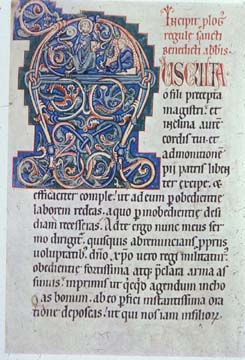 Incipit plog
regule sancti
benedicti abbis.
AUSCULTA
o fili precepta
magistri. et
inclina aurē
cordis tui. et
admonitionē
pii patris liben
ter excipe. et
efficaciter comple. ut ad eum p obedientię
laborem redeas. a quo p inobedientię desi
diam recesseras. Ad te ergo nunc meus ser
mo dirigit. quisquis abrenuncians ppriis
voluptatib;. dño xpo uero regi militatur
obedientię fortissima atq; pclara arma as
sumis. Inprimis ut qcqd agendum incho
as bonum. ab eo pfici instantissima ora
tione deposcas. ut qui nos iam in filiorū